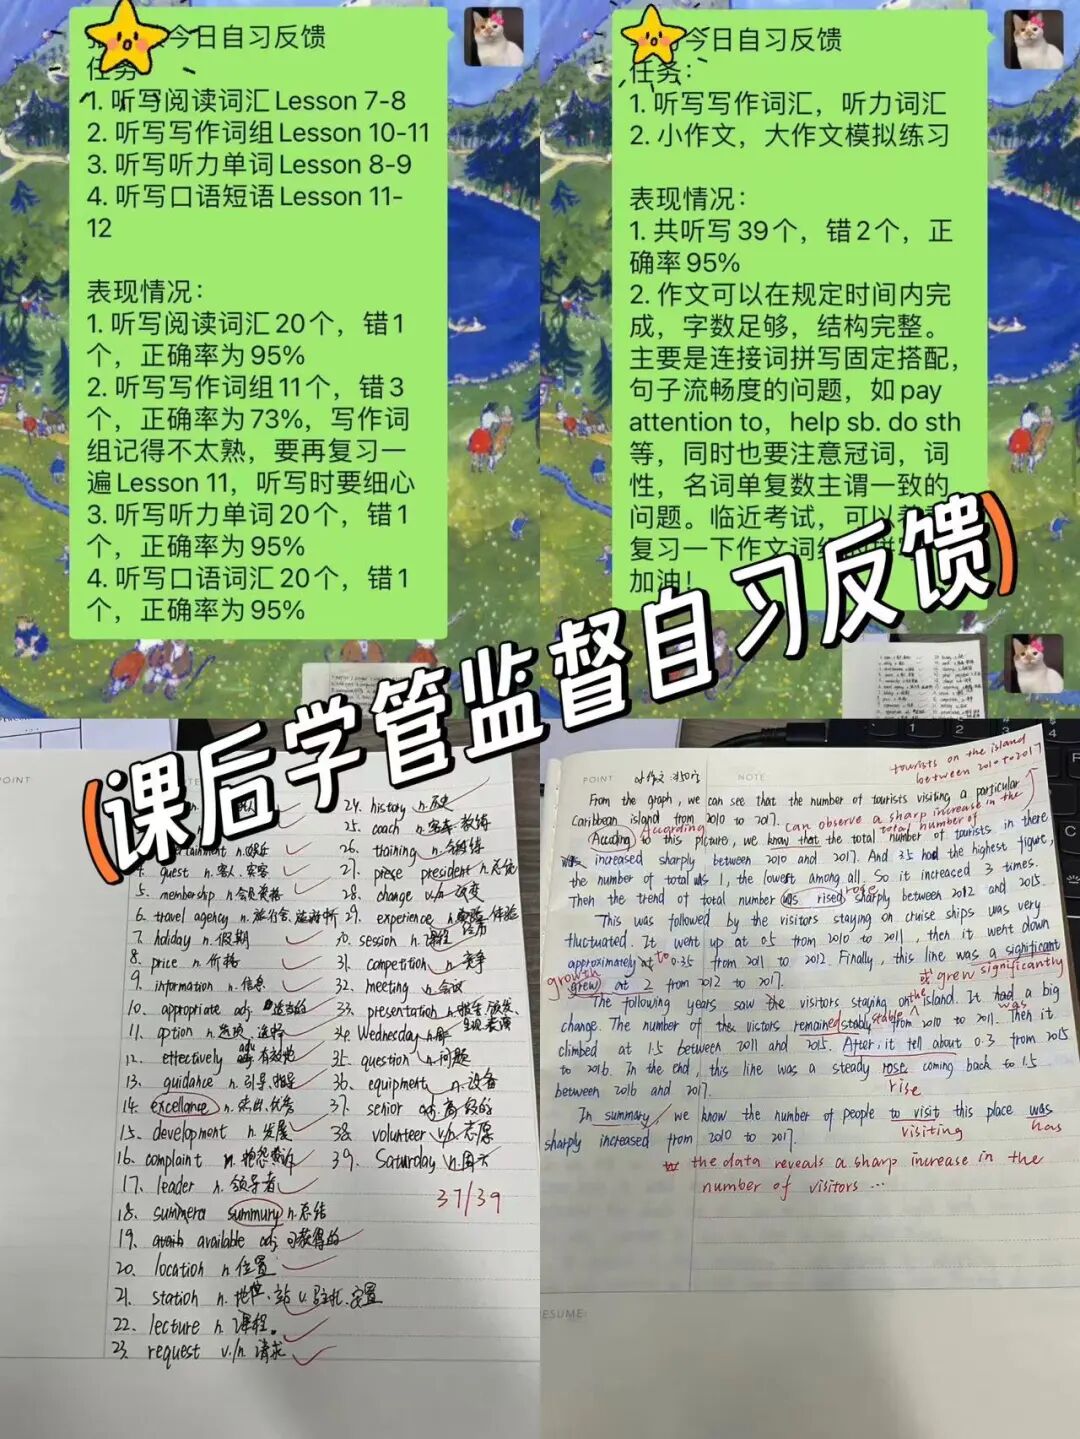 今日自习反馈
任务
1. 听写阅读词汇Lesson 7-8
2. 听写写作词组Lesson 10-11
3. 听写听力单词Lesson 8-9
4. 听写口语短语Lesson 11-
12
表现情况：
1. 听写阅读词汇20个，错1
个，正确率为95%
2. 听写写作词组11个，错3
个，正确率为73%，写作词
组记得不太熟，要再复习一
遍Lesson 11，听写时要细心
3. 听写听力单词20个，错1
个，正确率为95%
4. 听写口语词汇20个，错1
个，正确率为95%
今日自习反馈
任务：
1. 听写写作词汇，听力词汇
2. 小作文，大作文模拟练习
表现情况：
1. 共听写39个，错2个，正
确率95%
2. 作文可以在规定时间内完
成，字数足够，结构完整。
主要是连接词拼写固定搭配，
句子流畅度的问题，如pay
attention to，help sb. do sth
等，同时也要注意冠词，词
性，名词单复数主谓一致的
问题。临近考试，可以
复习一下作文词
加油！
(课后学管监督自习反馈)
POINT
4. guest n. 客人、宾客
5. membership n. 会员资格
6. travel agency n. 旅行社、
7. holiday n. 假期
8. price n. 价格
9. information n. 信息
10. appropriate adj. 适当的
11. option n. 选项、选择
12. effectively adv 有效地
13. guidance n. 引导、指导
14. excellance n. 杰出、优秀
15. development n. 发展
16. complaint n. 抱怨 投诉
17. leader n. 领导者
18. summury n. 总结
19. available adj. 可获得的
20. location n. 位置
21. station n. 地位、站 v. 驻扎、安置
22. lecture n. 课程。
23. request v./n. 请求
24. history n. 历史
25. coach n. 教练
26. training n.
27. president n.
28. change v/n 改变
29. experience n. 体验 经历
30. session n. 课程
31. competition n. 竞争
32. meeting n. 会议
33. presentation n.
34. Wednesday n.
35. question n. 问题
36. equipment n. 设备
37. senior adj. 高级的
38. volunteer v/n. 志愿
39. Saturday n. 周六
37/39
POINT
小作文
NOTE
tourists on the island
between 2010 to 2017
From the graph, we can see that the number of tourists visiting a particular
Caribbean island from 2010 to 2017.
According
can observe a sharp increase in the
total number of
Accoding to this picture, we know that the total number of tourists in there
increased sharply between 2010 and 2017. And 3.5 had the highest figure,
the number of total was 1, the lowest among all. So it increased 3 times.
rose
Then the trend of total number was rised sharply between 2012 and 2015.
This was followed by the visitors staying on cruise ships was very
fluctuated. It went up at 0.5 from 2010 to 2011, then it went down
to
approximately at 0.35 from 2011 to 2012. Finally, this line was a significant
growth
或 grew significantly
grew at 2 from 2012 to 2017.
The following years saw the visitors staying on the island. It had a big
was
stable
change. The number of the vistors remained stably from 2010 to 2011. Then it
climbed at 1.5 between 2011 and 2015. After, it tell about 0.3 from 2015
to 2016. In the end, this line was a steady rose coming back to 1.5
rise
between 2016 and 2017.
In summary, we know the number of people to visit this place was
visiting
has
sharply increased from 2010 to 2017.
the data reveals a sharp increase in the
number of visitors ...